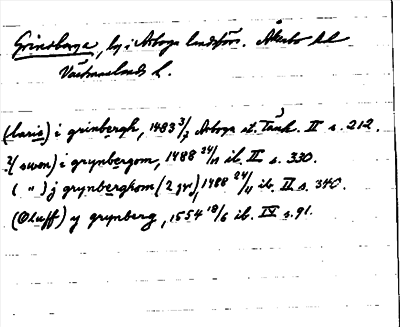 Grindberga, by i Arboga landsförs. Åkerbo hd
Västmanlands l.
(laris) i grinbergh, 1483 3/2 Arboga st. Tänk. II s. 212.
?(swen) i grynbergom, 1488 24/11 ib. II s. 330.
( " ) j grynberghom (2 ggr), 1488 24/11 ib. II s. 340.
(Oluff) y grynberg, 1554 18/6 ib. IV s. 91.